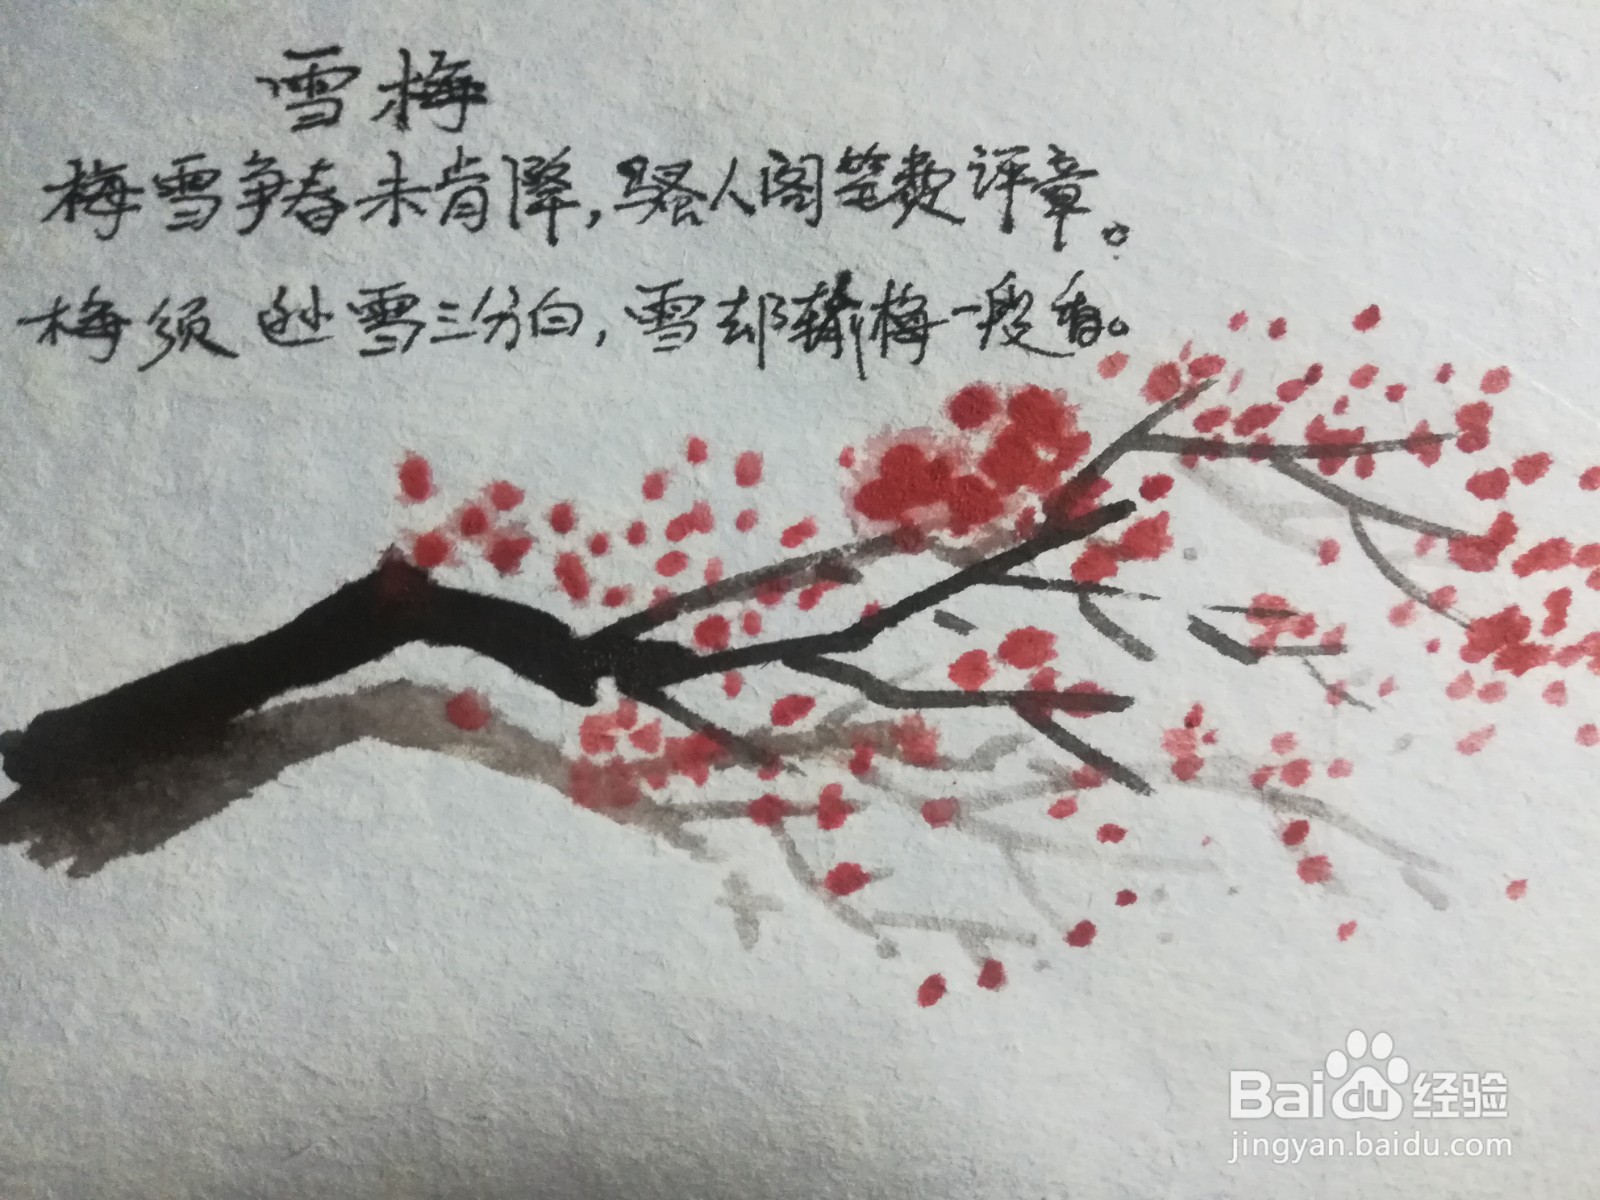 雪梅
梅雪争春未肯降,骚人阁笔费评章。
梅须逊雪三分白,雪却输梅一段香。
Bai du 经验
jingyan.baidu.com